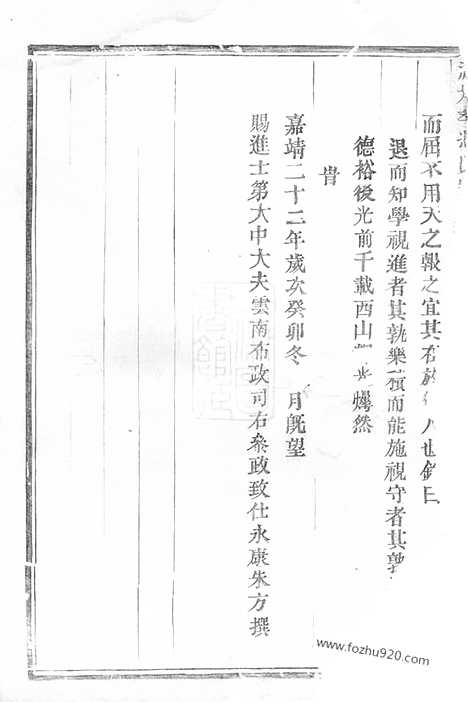 而屈不用天之報之宜其在於人也銘曰
退而知學視進者其孰樂積而能施視守者其孰
德裕後光前千載西山燁然
旹
嘉靖二十二年歲次癸卯冬月旣望
賜進士第大中大夫雲南布政司右叅政致仕永康朱方撰
www.fozhu920.com